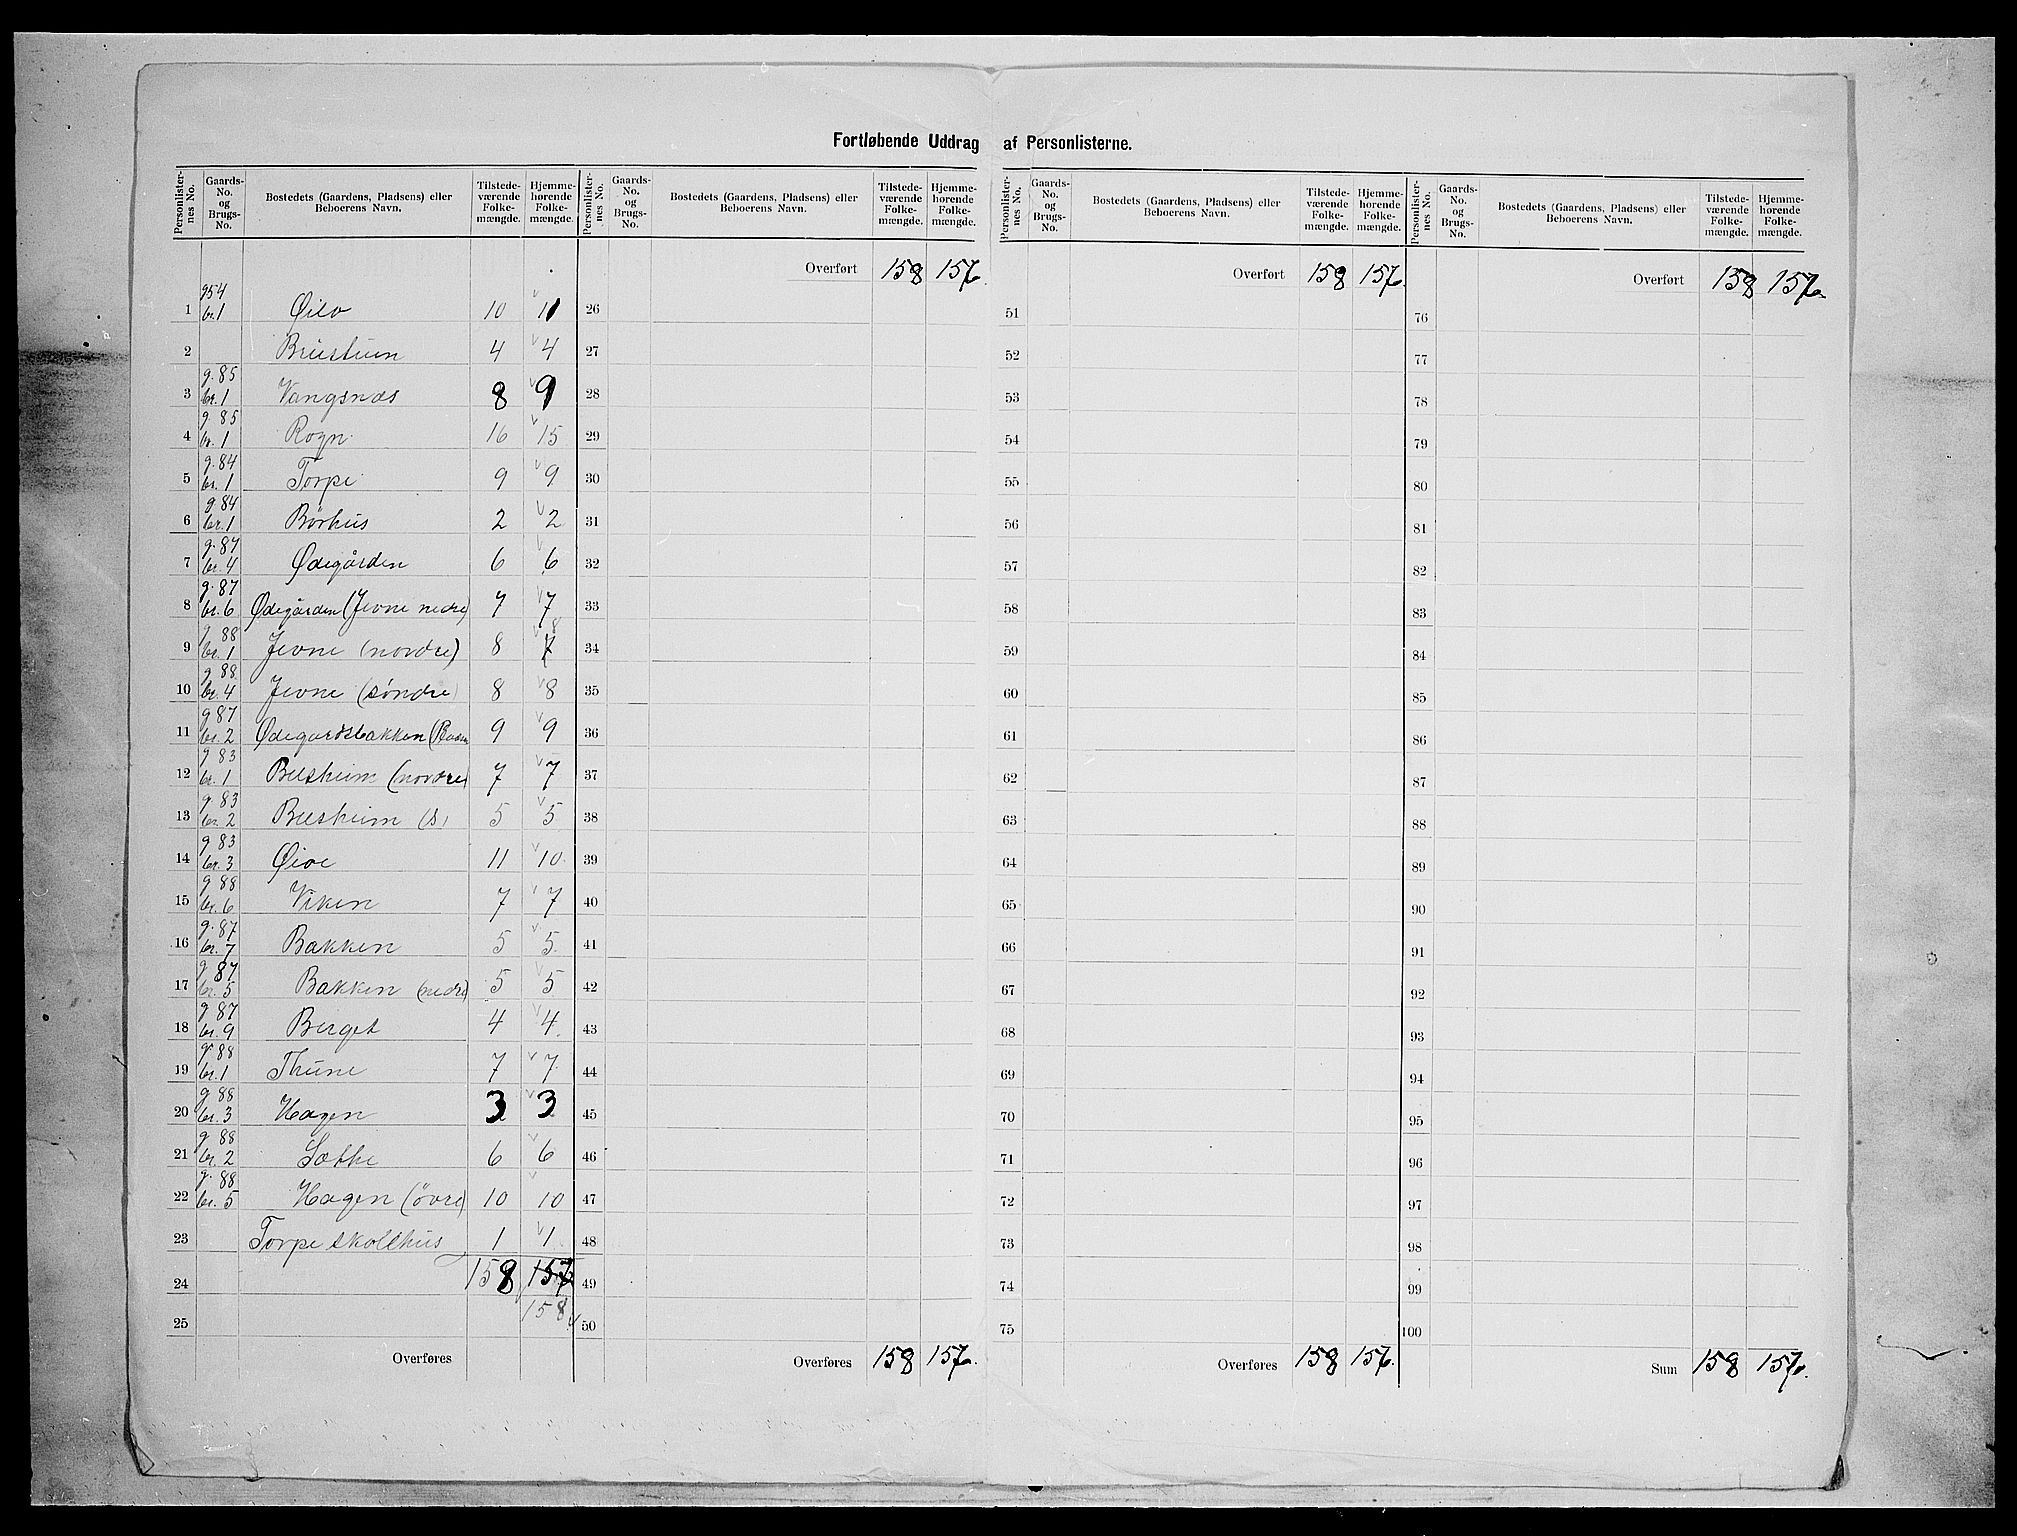 Fortløbende Uddrag af Personlisterne.
Personlister-nes No. Gaards-No. og Brugs-No. Bostedets (Gaardens, Pladsens) eller Beboerens Navn. Tilstede-værende Folke-mængde. Hjemme-hørende Folke-mængde.
1 g54 br.1 Øilo 10 11
2 Brustuen 4 4
3 g. 85 br. 1 Vangsnæs 8 9
4 g. 85 br. 1 Rogn 16 15
5 g. 84 br. 1 Torpe 9 9
6 g. 84 br. 1 Börhus 2 2
7 g. 87 br. 4 Ødegården 6 6
8 g. 87 br. 6 Ødegården (Jevne nedre) 7 7
9 g. 88 br. 1 Jevne (nordre) 8 7 8
10 g. 88 br. 4 Jevne (søndre) 8 8
11 g 87 br. 2 Ødegardsbakken 9 9
12 g 83 br. 1 Belsheim (nordre) 7 7
13 g. 83 br. 2 Belsheim (s) 5 5
14 g 83 br. 3 Øioe 11 10
15 g 88 br. 6 Viken 7 7
16 g. 87 br. 7 Bakken 5 5
17 g 87 br. 5 Bakken (nedre) 5 5
18 g 87 br. 9 Berget 4 4
19 g 88 br. 1 Thune 7 7
20 g 88 br. 3 Hagen 3 3
21 g 88 br. 2 Sæthe 6 6
22 g. 88 br. 5 Hagen (övre) 10 10
23 Torpe skolehus 1 1
24 158 157
158
25
Overføres
Personlister-nes No. Gaards-No. og Brugs-No. Bostedets (Gaardens, Pladsens) eller Beboerens Navn. Tilstede-værende Folke-mængde. Hjemme-hørende Folke-mængde.
Overført 158 157
26
27
28
29
30
31
32
33
34
35
36
37
38
39
40
41
42
43
44
45
46
47
48
49
50
Overføres 158 157
Personlister-nes No. Gaards-No. og Brugs-No. Bostedets (Gaardens, Pladsens) eller Beboerens Navn. Tilstede-værende Folke-mængde. Hjemme-hørende Folke-mængde.
Overført 158 157
51
52
53
54
55
56
57
58
59
60
61
62
63
64
65
66
67
68
69
70
71
72
73
74
75
Overføres 158 157
Personlister-nes No. Gaards-No. og Brugs-No. Bostedets (Gaardens, Pladsens) eller Beboerens Navn. Tilstede-værende Folke-mængde. Hjemme-hørende Folke-mængde.
Overført 158 157
76
77
78
79
80
81
82
83
84
85
86
87
88
89
90
91
92
93
94
95
96
97
98
99
100
Sum 158 157